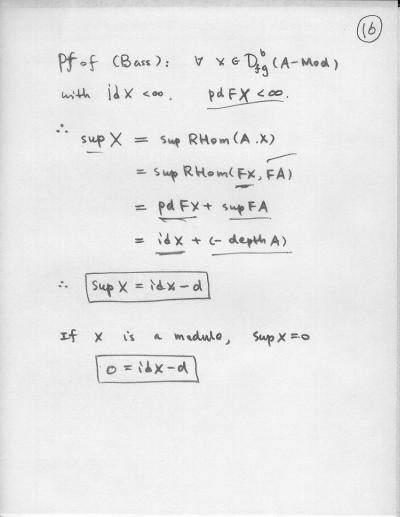 16
Pf of (Bass): ∀ X ∈ D_fg^b (A-Mod)
with id X < ∞. pd FX < ∞.
∴ sup X = sup RHom(A.X)
= sup RHom(FX, FA)
= pd FX + sup FA
= id X + (- depth A)
∴ sup X = id X - d
If X is a module, sup X = 0
0 = id X - d